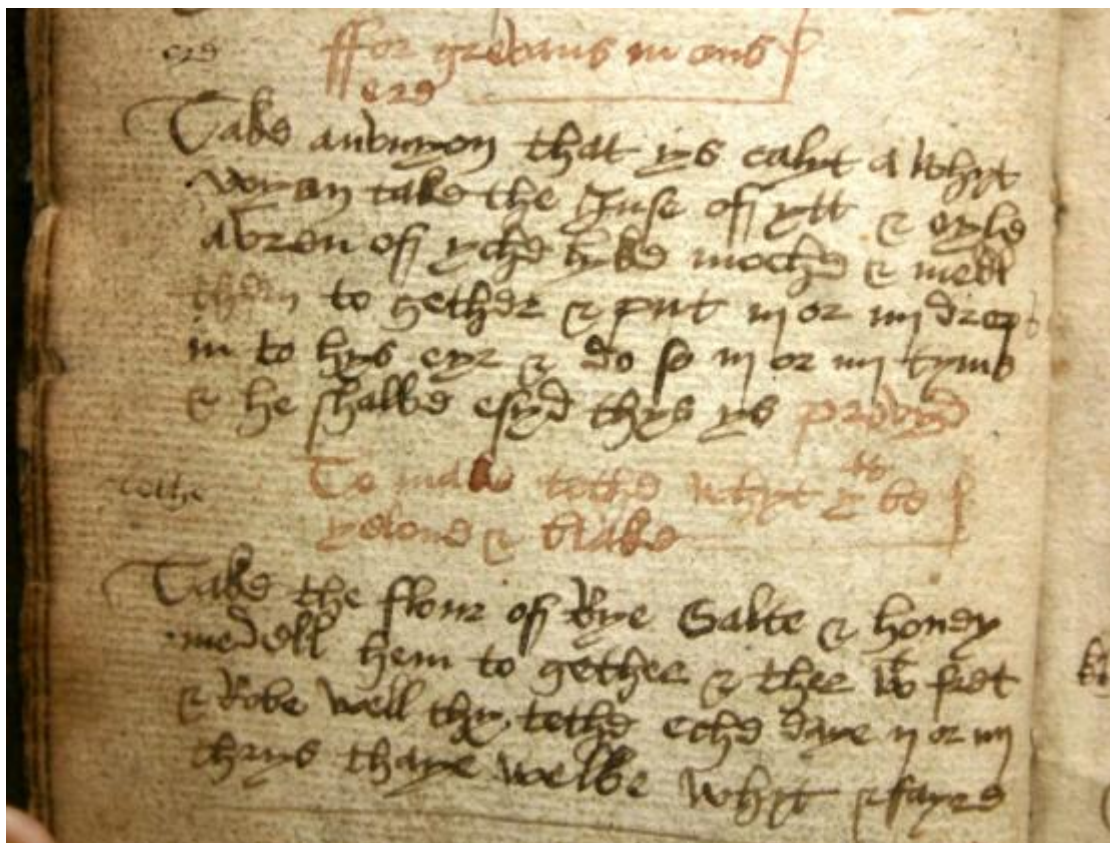 ere ffor grevans in ons
ere
Take that ys calyt a whyt
take the Juse off ytt & oyle
off yche lyke moche & medl
them to gether & put iij or iiij drops
in to hys eyr & do so iij or iiij tyms
& he shalbe esyd thys ys provyd
tethe To make tethe whyt yt be
yelowe & blake
Take the flour off Rye Salte & honey
medell hem to gether & ther wt fret
& Robe well thy tethe eche daye ij or iij
thrys thaye welbe whyt & fayre